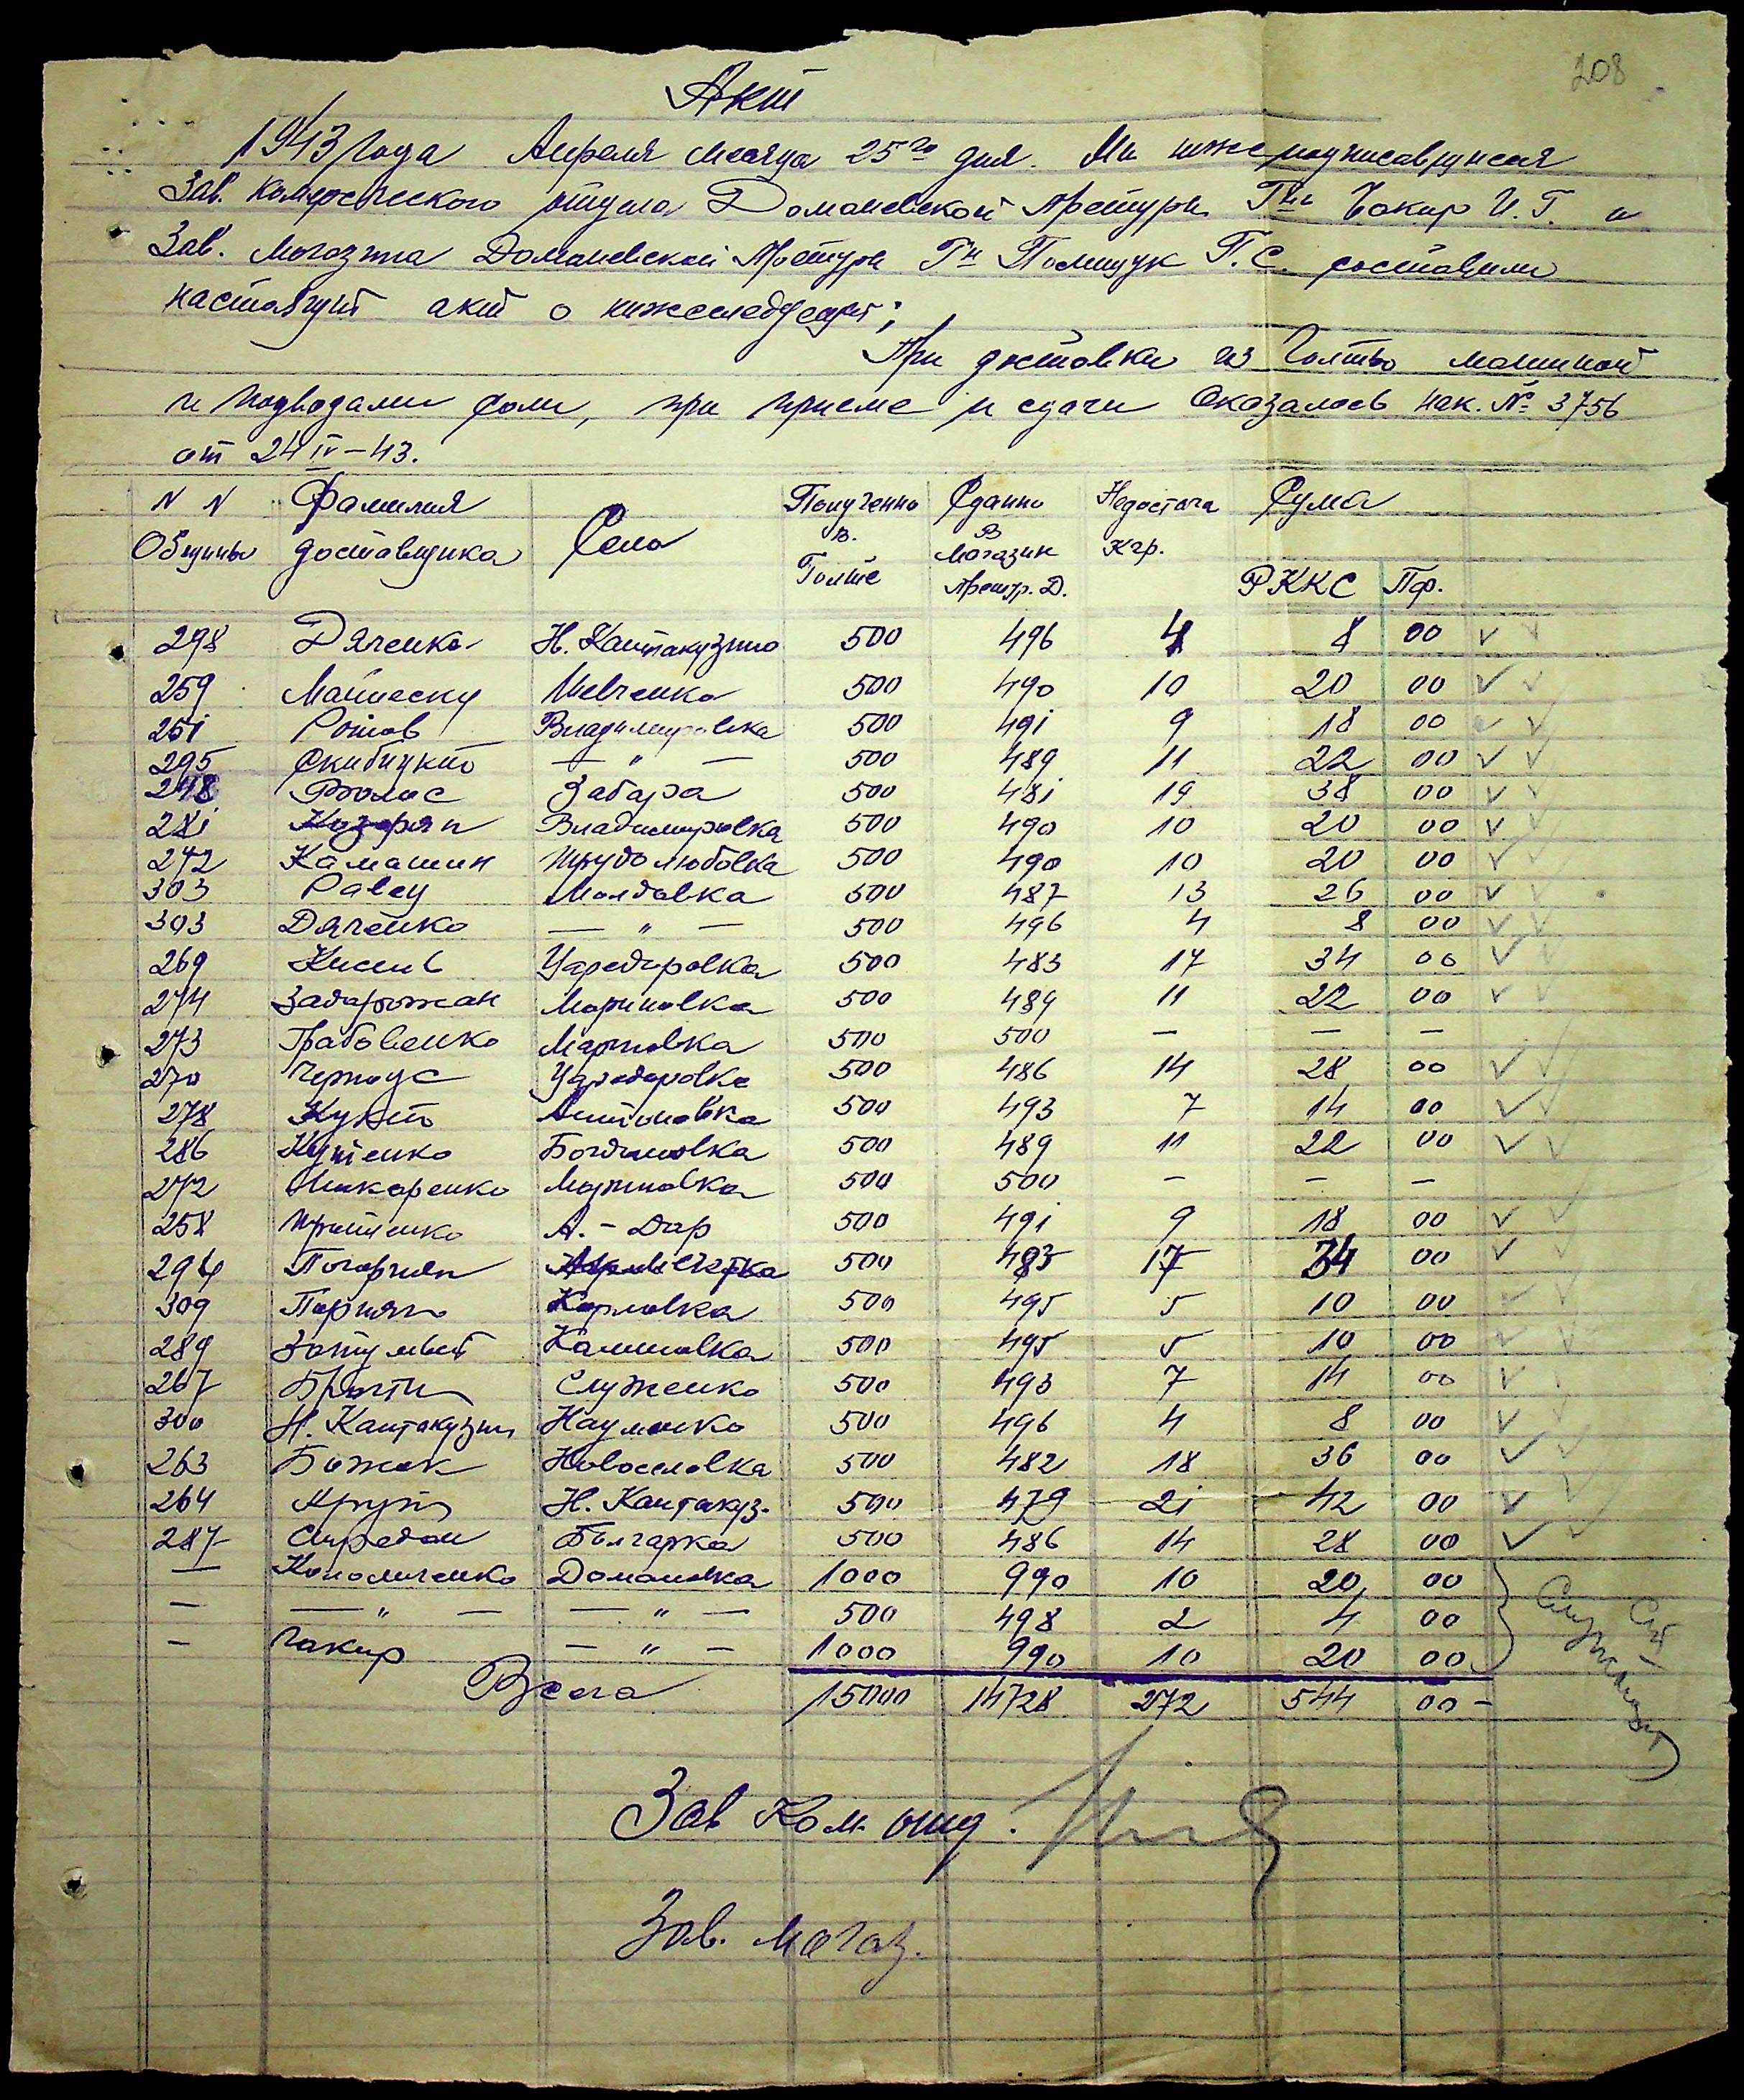 208
Акт
1943 года Апреля месяца 25го дня. Ми нижеподписавшиеся
Зав. Комерческого отдела Доманевской претури Гн Чакир И. Г. и
Зав. Магазина Доманевской Претури Гн Полищук Г. С. составили
настоящий акт о нижеследующем;
При доставки из Голты машиной
и подводами соли, при приеме и сдачи Оказалось нак. № 3756
от 24 IV – 43.
N N Фамилия Село Полученно Сданно Недостача Сума
Общины доставщика в. В Кгр.
Голте Магазин
Претур. Д. РККС Пф.
298 Дяченко Н. Кантакузино 500 496 4 8 00
259 Шевченко 500 490 10 20 00
251 Владимировка 500 491 9 18 00
295 Скибицкий — " — 500 489 11 22 00
248 Волос Забара 500 481 19 38 00
281 Владимировка 500 490 10 20 00
272 Камашин Трудолюбовка 500 490 10 20 00
303 Молдавка 500 487 13 26 00
303 Дяченко — " — 500 496 4 8 00
269 Царедаровка 500 483 17 34 00
274 Мариновка 500 489 11 22 00
273 Грабовенко Мариновка 500 500 — — —
270 Черноус Царедаровка 500 486 14 28 00
278 Антоновка 500 493 7 14 00
286 Куценко Богдановка 500 489 11 22 00
272 Мариновка 500 500 – – –
258 А. – Дар 500 491 9 18 00
294 500 483 17 34 00
309 Карловка 500 495 5 10 00
289 Калиновка 500 495 5 10 00
267 Служенко 500 493 7 14 00
300 Н. Кантакузин Науменко 500 496 4 8 00
263 Божок Новоселовка 500 482 18 36 00
264 Н. Кантакуз. 500 479 21 42 00
287 Болгарка 500 486 14 28 00
— Кононученко Домановка 1000 990 10 20 00
— — " — — " — 500 498 2 4 00
– Чакир — " — 1000 990 10 20 00
Всего 15000 14728 272 544 00 –
Зав Ком. отд.
Зав. Магаз.